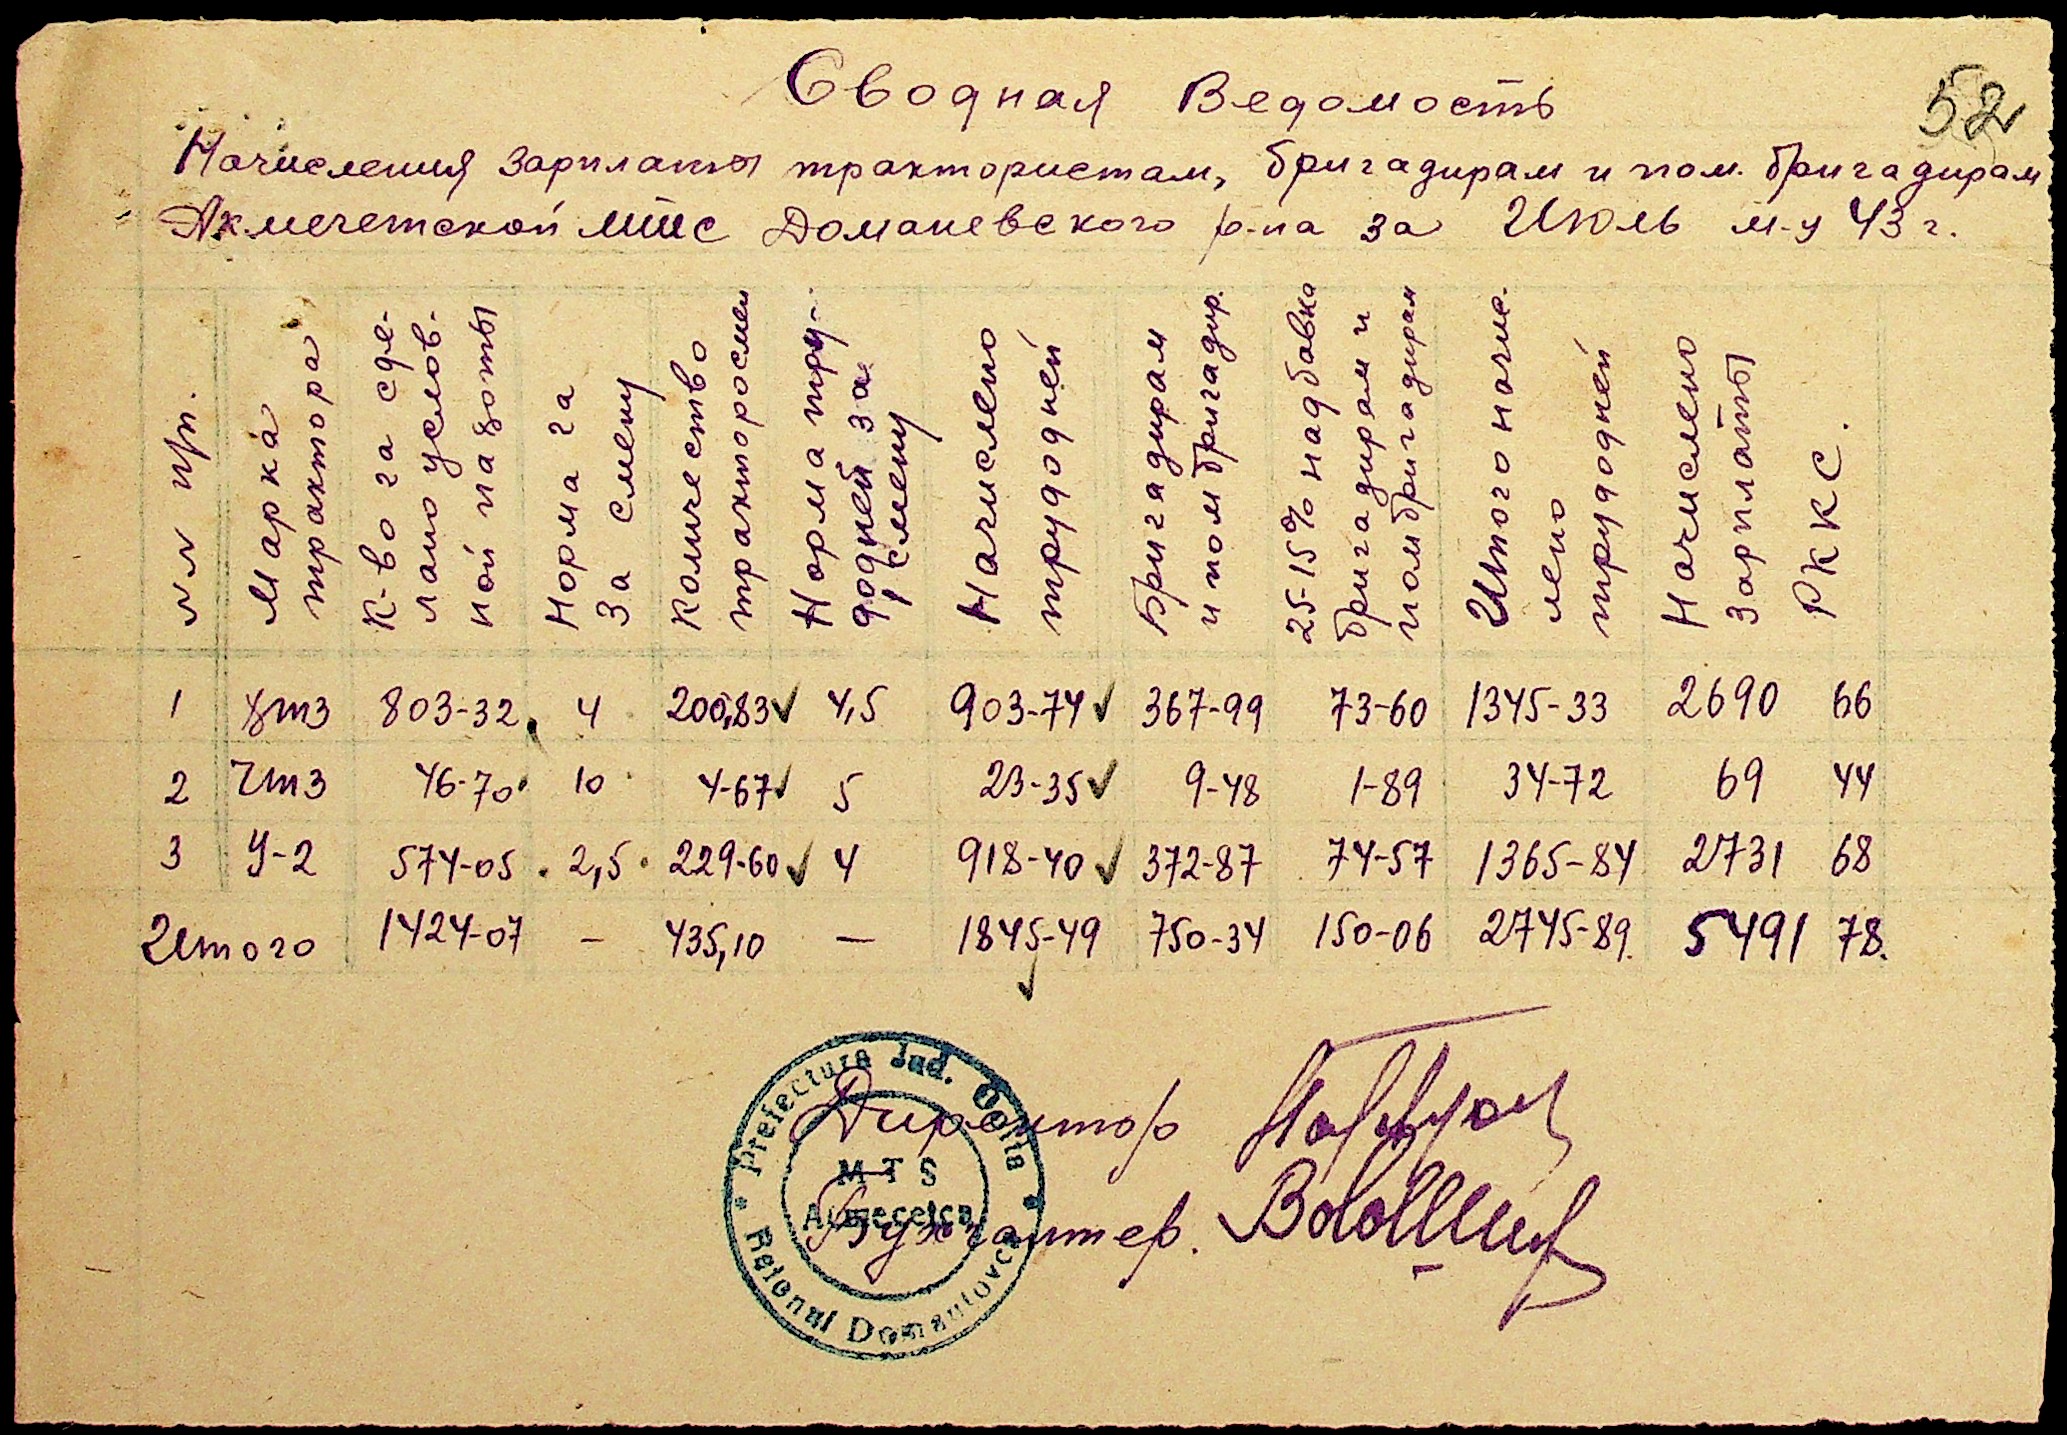 52
Сводная Ведомость
Начисления зарплаты трактористам, бригадирам и пом. бригадирам
Акмечетской МТС Доманевского р-на за Июль м-ц 43 г.
№№ пп.
Марка
трактора
К-во га сде-
лано услов-
ной пахоты
Норма га
за смену
Количество
тракторосмен
Норма тру-
додней за
1 смену
Начислено
трудодней
Бригадирам
и помбригадир.
25-15% надбавка
бригадирам и
помбригадирам
Итого начис-
лено
трудодней
Начислено
зарплаты
РККС.
1 хтз 803-32 4 200,83 ✓ 4,5 903-74 ✓ 367-99 73-60 1345-33 2690 66
2 Чтз 46-70 10 4-67 ✓ 5 23-35 ✓ 9-48 1-89 34-72 69 44
3 У-2 574-05 2,5 229-60 ✓ 4 918-40 ✓ 372-87 74-57 1365-84 2731 68
Итого 1424-07 – 435,10 – 1845-49 ✓ 750-34 150-06 2745-89. 5491 78.
Prefectura Jud. Golta
Директор
MTS
Acmecetca
Бухгалтер.
Reionul Domaniovca